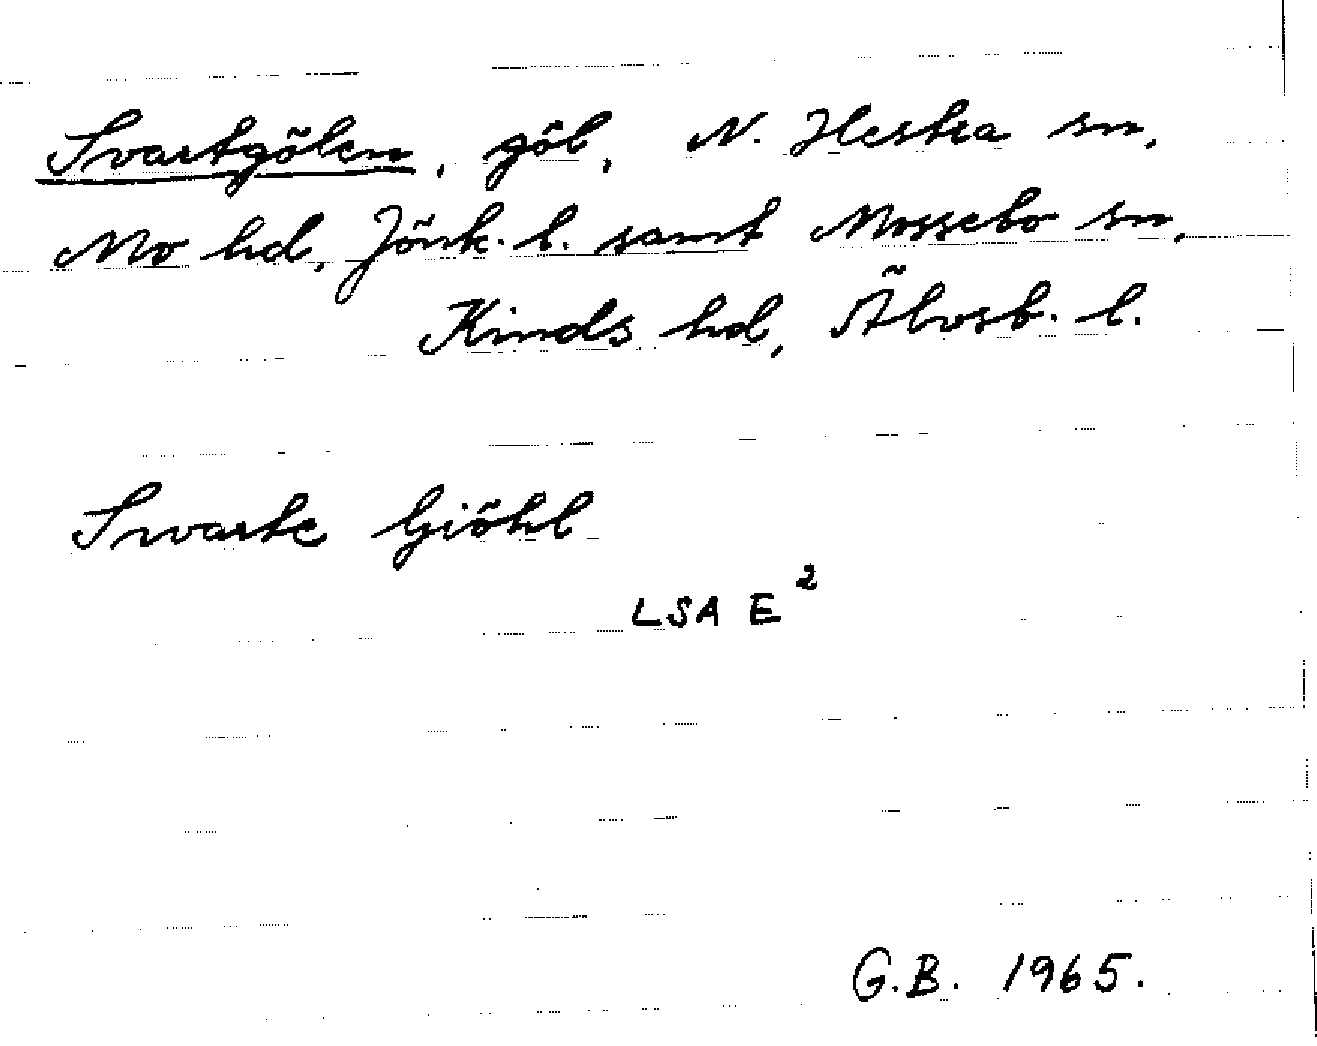 Svartgölen, göl, N. Hestra sn,
Mo hd, Jönk. l. samt Mossebo sn,
Kinds hd, Älvsb. l.
Swarte Giöhl
LSA E²
G.B. 1965.